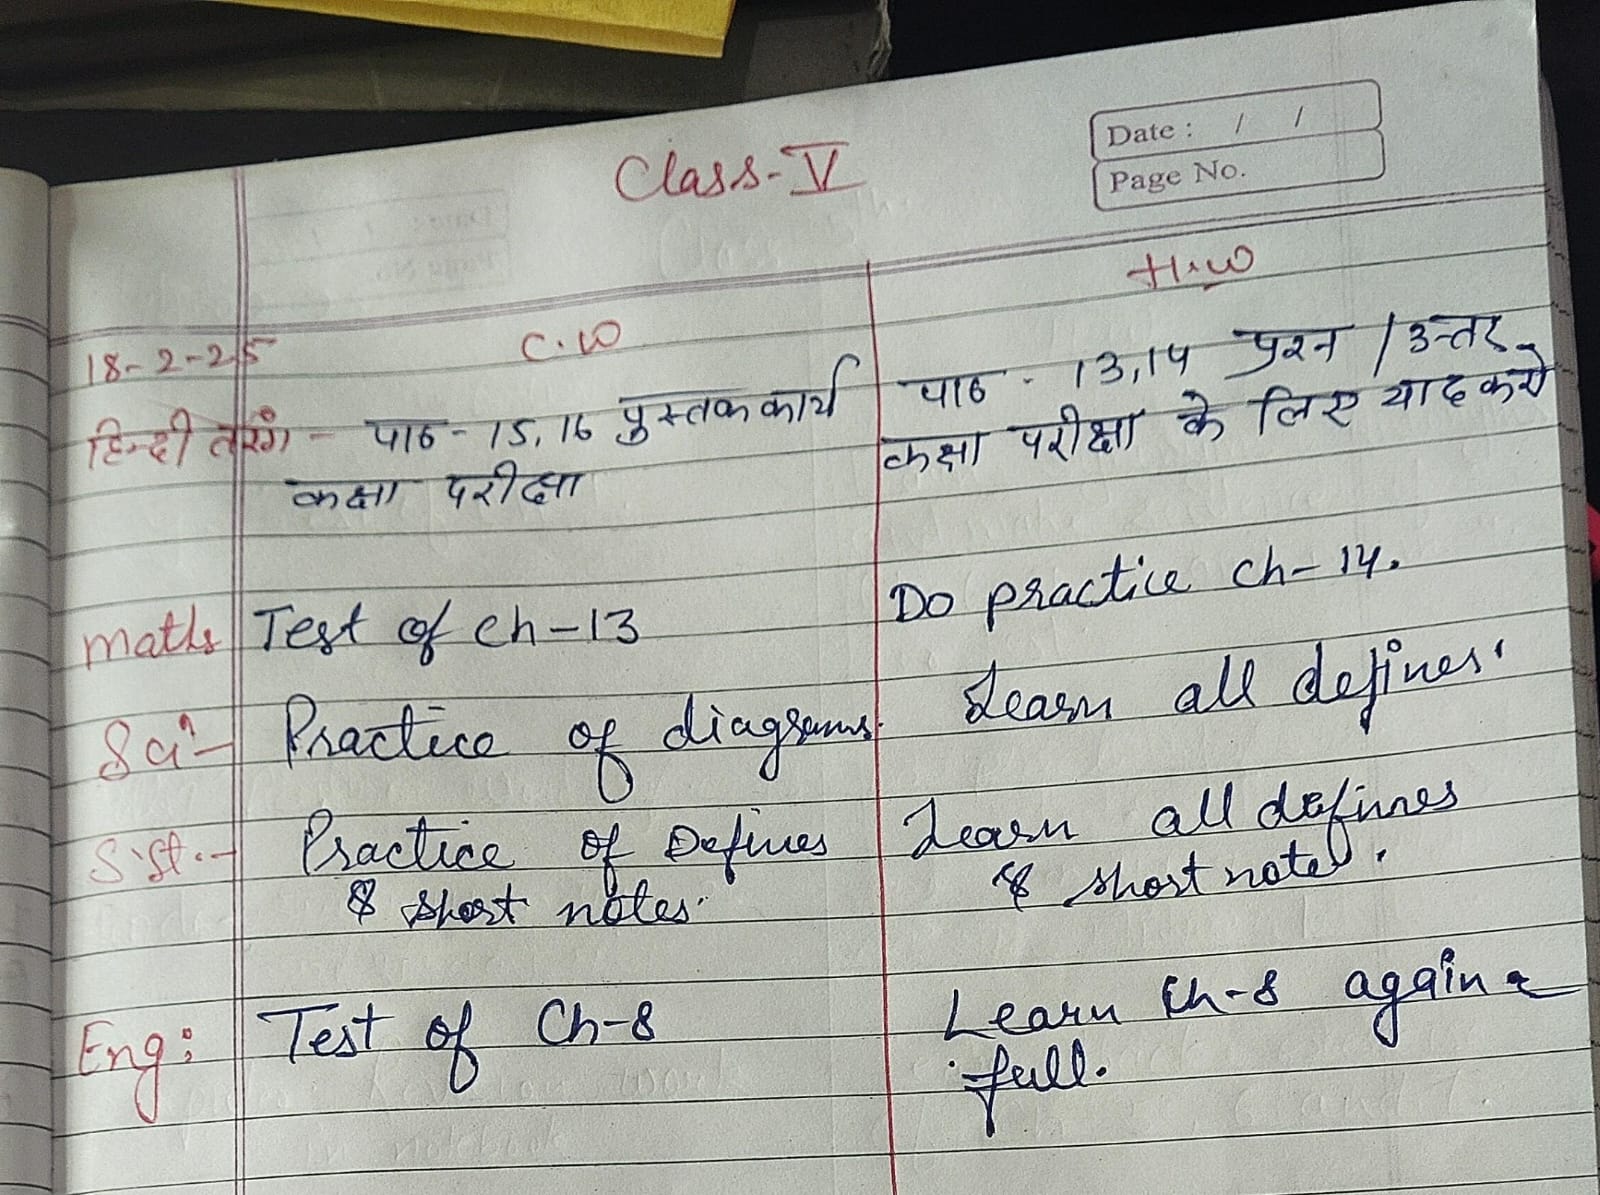 Date : / /
Page No.
Class-V
H.W
C.W
18-2-25
हिन्दी तरंग - पाठ - 15, 16 पुस्तक कार्य
कक्षा परीक्षा
पाठ - 13,14 प्रश्न / उत्तर
कक्षा परीक्षा के लिए याद करो
Maths Test of ch-13
Do practice ch-14.
Sci- Practice of diagrams.
Learn all defines.
S.St.- Practice of Defines
& short notes.
Learn all defines
& short notes.
Eng: Test of Ch-8
Learn Ch-8 again
full.